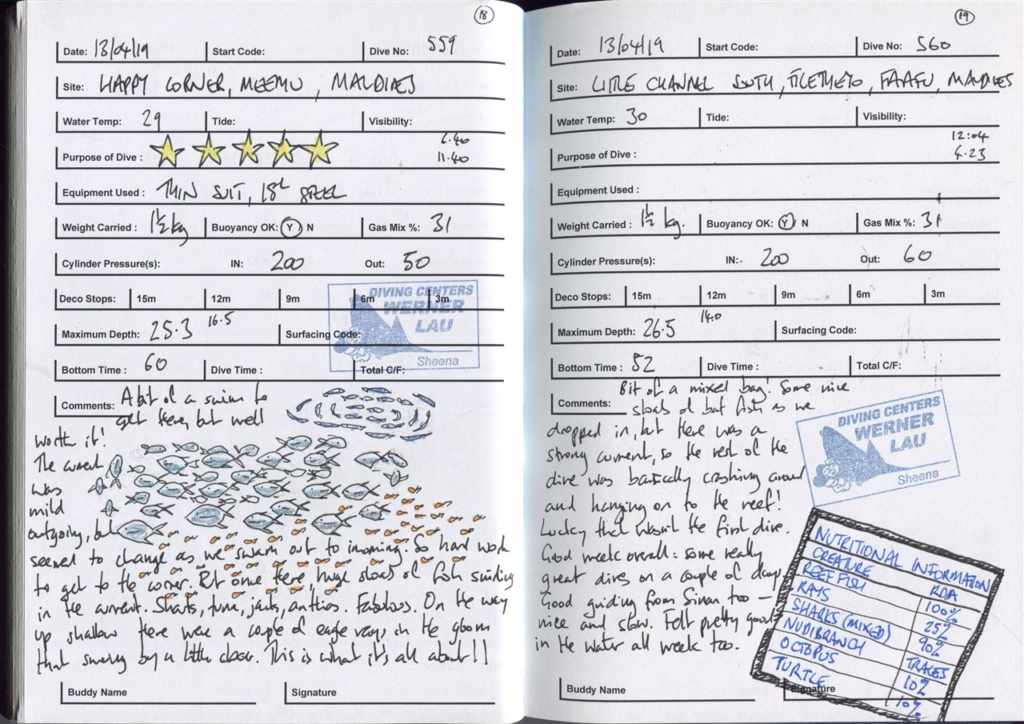 18
Date: 13/04/19 Start Code: Dive No: 559
Site: HAPPY CORNER, MEEMU, MALDIVES
Water Temp: 29 Tide: Visibility:
Purpose of Dive:
11.40
Equipment Used: THIN SUIT, 18L STEEL
Weight Carried: 1½ kg Buoyancy OK: Y N Gas Mix %: 31
Cylinder Pressure(s): IN: 200 Out: 50
Deco Stops: 15m 12m 9m 6m 3m
16.5
Maximum Depth: 25.3 Surfacing Code:
Bottom Time: 60 Dive Time: Total C/F:
DIVING CENTERS
WERNER
LAU
Sheena
Comments: A bit of a swim to
get there, but well
worth it!
The current
was
mild
outgoing, but
seemed to change as we swam out to incoming. So hard work
to get to the corner. But once there huge shoals of fish
in the current. Sharks, tuna, jacks, anthias. Fabulous. On the way
up shallow there were a couple of eagle rays in the gloom
that swung by a little closer. This is what it's all about!!
Buddy Name Signature
19
Date: 13/04/19 Start Code: Dive No: 560
Site: LITTLE CHANNEL SOUTH, FAAFU, MALDIVES
Water Temp: 30 Tide: Visibility:
12:04
Purpose of Dive:
4.23
Equipment Used:
Weight Carried: 1½ kg. Buoyancy OK: Y N Gas Mix %: 31
Cylinder Pressure(s): IN: 200 Out: 60
Deco Stops: 15m 12m 9m 6m 3m
14.0
Maximum Depth: 26.5 Surfacing Code:
Bottom Time: 52 Dive Time: Total C/F:
Comments: Bit of a mixed bag! Some nice
shoals of bat fish as we
dropped in, but there was a
strong current, so the rest of the
dive was basically crashing around
and hanging on to the reef!
Lucky that wasn't the first dive.
Good week overall: some really
great dives on a couple of days
Good guiding from Sinan too –
nice and slow. Felt pretty good
in the water all week too.
DIVING CENTERS
WERNER
LAU
Sheena
NUTRITIONAL INFORMATION
CREATURE RDA
REEF FISH 100%
RAYS 25%
SHARKS (MIXED) 90%
NUDIBRANCH TRACES
OCTOPUS 10%
TURTLE 10%
Buddy Name Signature